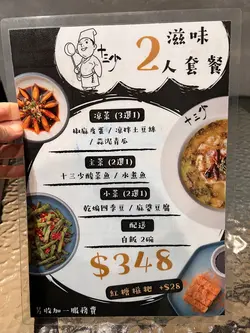 十三少
滋味
2人套餐
十三少
涼菜 (3選1)
椒麻皮蛋 / 涼拌土豆絲
/ 蒜泥青瓜
主菜 (2選1)
十三少酸菜魚 / 水煮魚
小菜 (2選1)
乾煸四季豆 / 麻婆豆腐
配送
白飯 2碗
$348
紅糖糍粑 +$28
另收加一服務費